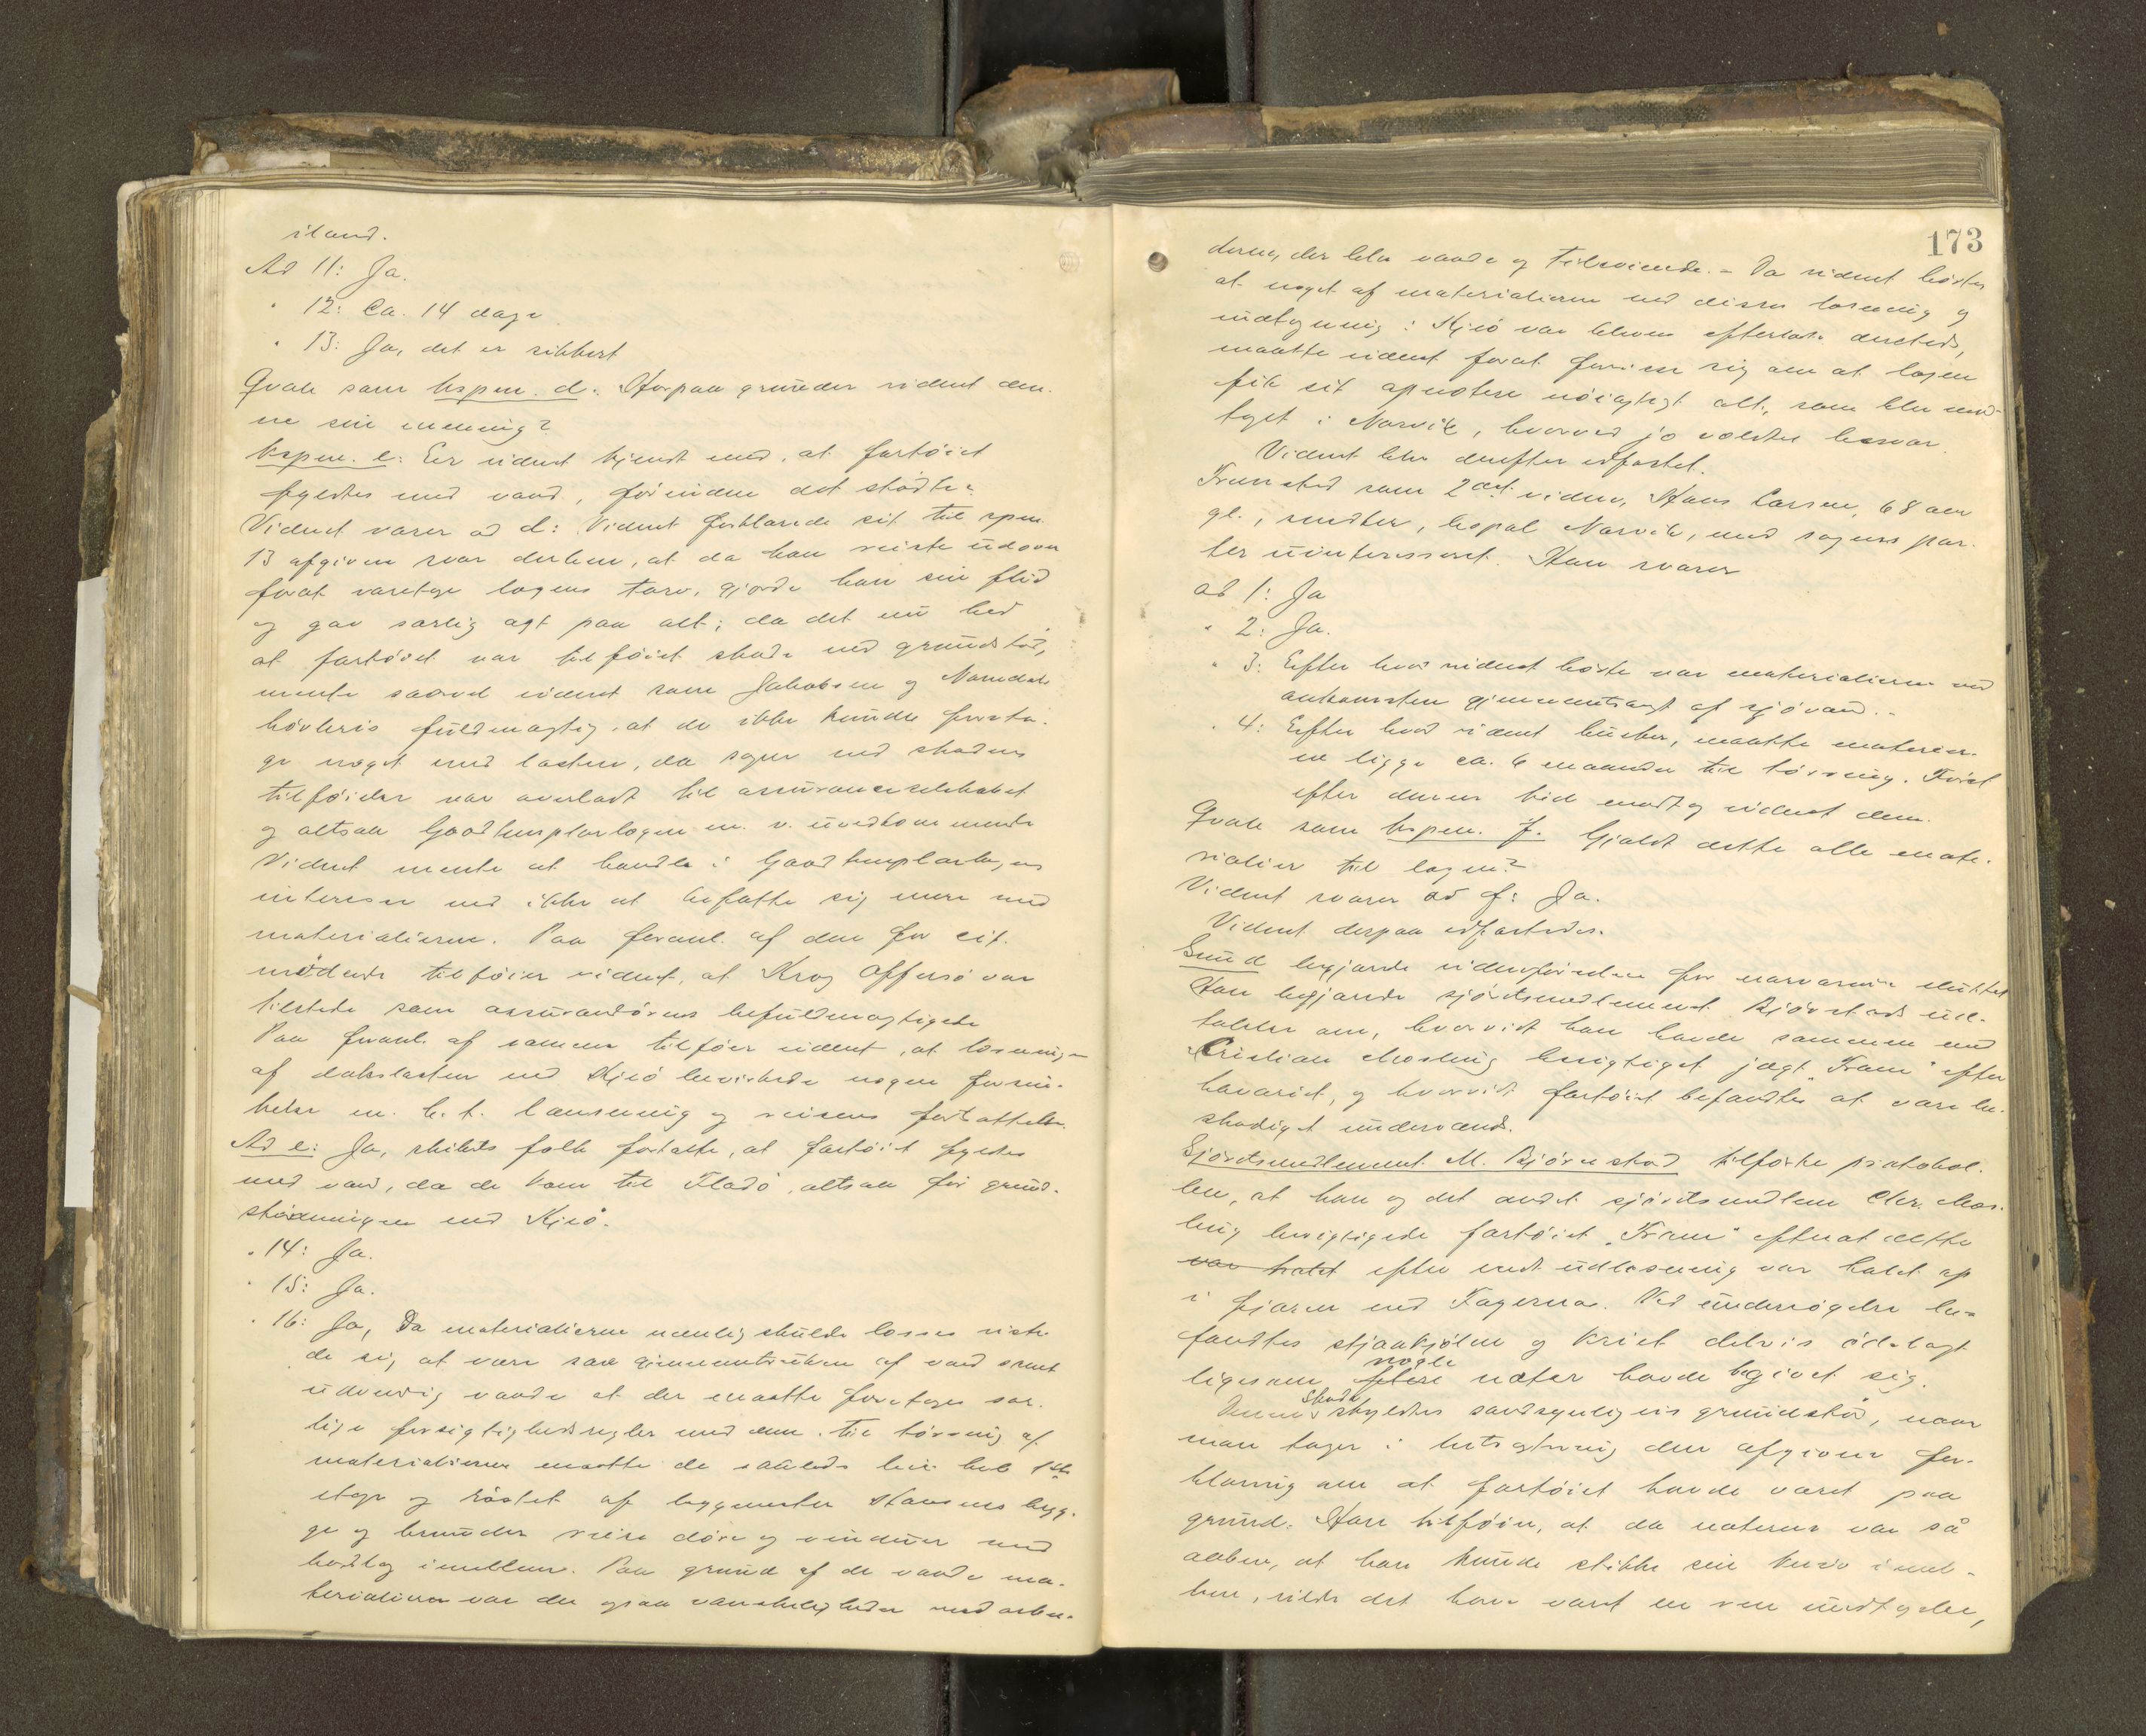 iland.
Ad 11: Ja.
" 12: Ca. 14 dage
" 13: Ja, det er sikkert
Qvale som kspm. d: Hvorpaa grunder vidnet den-
ne sin mening?
kspm. e: Er vidnet kjendt med, at fartøiet
fyldtes med vand, før inden det stødte?
Vidnet svarer ad d: Vidnet forklarede sit til spm.
13 afgivne svar derhen, at da han reiste udover
forat varetage logens tarv, gjorde han sin flid
og gav særlig agt paa alt; da det nu hed
at fartøiet var tilføiet skade ved grundstød,
mente saavel vidnet som Jakobsen og Namdals
høvleris fuldmægtig, at de ikke kunde foreta-
ge noget med lasten, da sagen ved skadens
tilføielse var overladt til assuranceselskabet
og altsaa Goodtemplarlogen m. v. uvedkommende
Vidnet mente at handle i Goodtemplarlogens
interesse ved ikke at befatte sig mere med
materialierne. Paa foranl. af den for cit.
mødende tilføier vidnet, at Krog Offersø var
tilstede som assurandørens befuldmægtigede
Paa foranl. af samme tilføier vidnet, at losningen
af dækslasten ved Kjeø bevirkede nogen forsin-
kelse m. h. t. lænsning og reisens fortsættelse.
Ad e: Ja, skibets folk fortalte, at fartøiet fyldtes
med vand, da de kom til Fladø, altsaa før grund-
stødningen ved Kjeø.
" 14: Ja.
" 15: Ja.
" 16: Ja, Da materialierne nemlig skulde losses viste
de sig at være saa gjennemtrukken af vand samt
udvendig vaade at der maatte foretages sær-
lige forsigtighedsregler med dem. Til tørring af
materialierne maatte de saaledes leie hele 1ste
etage og røstet af byggmester Hansens byg-
ge og benyttede veise døre og vinduer med
bordlag imellem. Paa grund af de vaade ma-
terialier var der ogsaa vanskeligheder med arbei-
173
derne, der blev vaade og tilsvinede. – Da vidnet hørte
at noget af materialierne ved disses losning og
indtagning i Kjeø var bleven efterladt dersteds,
maatte vidnet forat forvisse sig om at logen
fik sit opnotere nøiagtigt alt, som blev mod-
taget i Narvik, hvorved jo voldtes besvær.
Vidnet blev derefter edfæstet.
Fremstod som 2det vidne, Hans Larsen, 68 aar
gl., snedker, bopæl Narvik, med sagens par-
ter uinteresseret. Han svarer
ad 1: Ja
" 2: Ja.
" 3: Efter hvad vidnet hørte var materialierne ved
ankomsten gjennemtrængt af sjøvand. –
" 4: Efter hvad vidnet husker, maatte materier-
ne ligge ca. 6 maaneder til tørring. Først
efter denne tid modtog vidnet dem.
Qvale som kspm. f. Gjaldt dette alle mate-
rialier til logen?
Vidnet svarer ad f: Ja.
Vidnet derpaa edfæstedes.
Sund begjærte vidneførselen for nærværende sluttet
Han begjærede sjøretsmedlemmet Bjørnstad ud-
talelse om, hvorvidt han havde sammen med
Kristian Mosling besigtiget jægt "Fram" efter
havariet, og hvorvidt fartøiet befandtes at være be-
skadiget undervands.
Sjøretsmedlemmet M. Bjørnstad tilførte protokol-
len, at han og det andet sjøretsmedlem Chr. Mos-
ling besigtigede fartøiet "Fram" efterat dette
var halet efter endt udlosning var halet op
i fjæren ved Fagernæs. Ved undersøgelse be-
fandtes straakjølen og kniet delvis ødelagt
nogle
ligesom flere nater havde begivet sig.
Skade
Denne skyldtes sandsynligvis grundstød, naar
man tager i betragtning den afgivne for-
klaring om at fartøiet havde været paa
grund. Han tilføier, at da naterne var så
aaben, at han kunde stikke sin kniv imel-
lem, vilde det have været en ren umulighed,